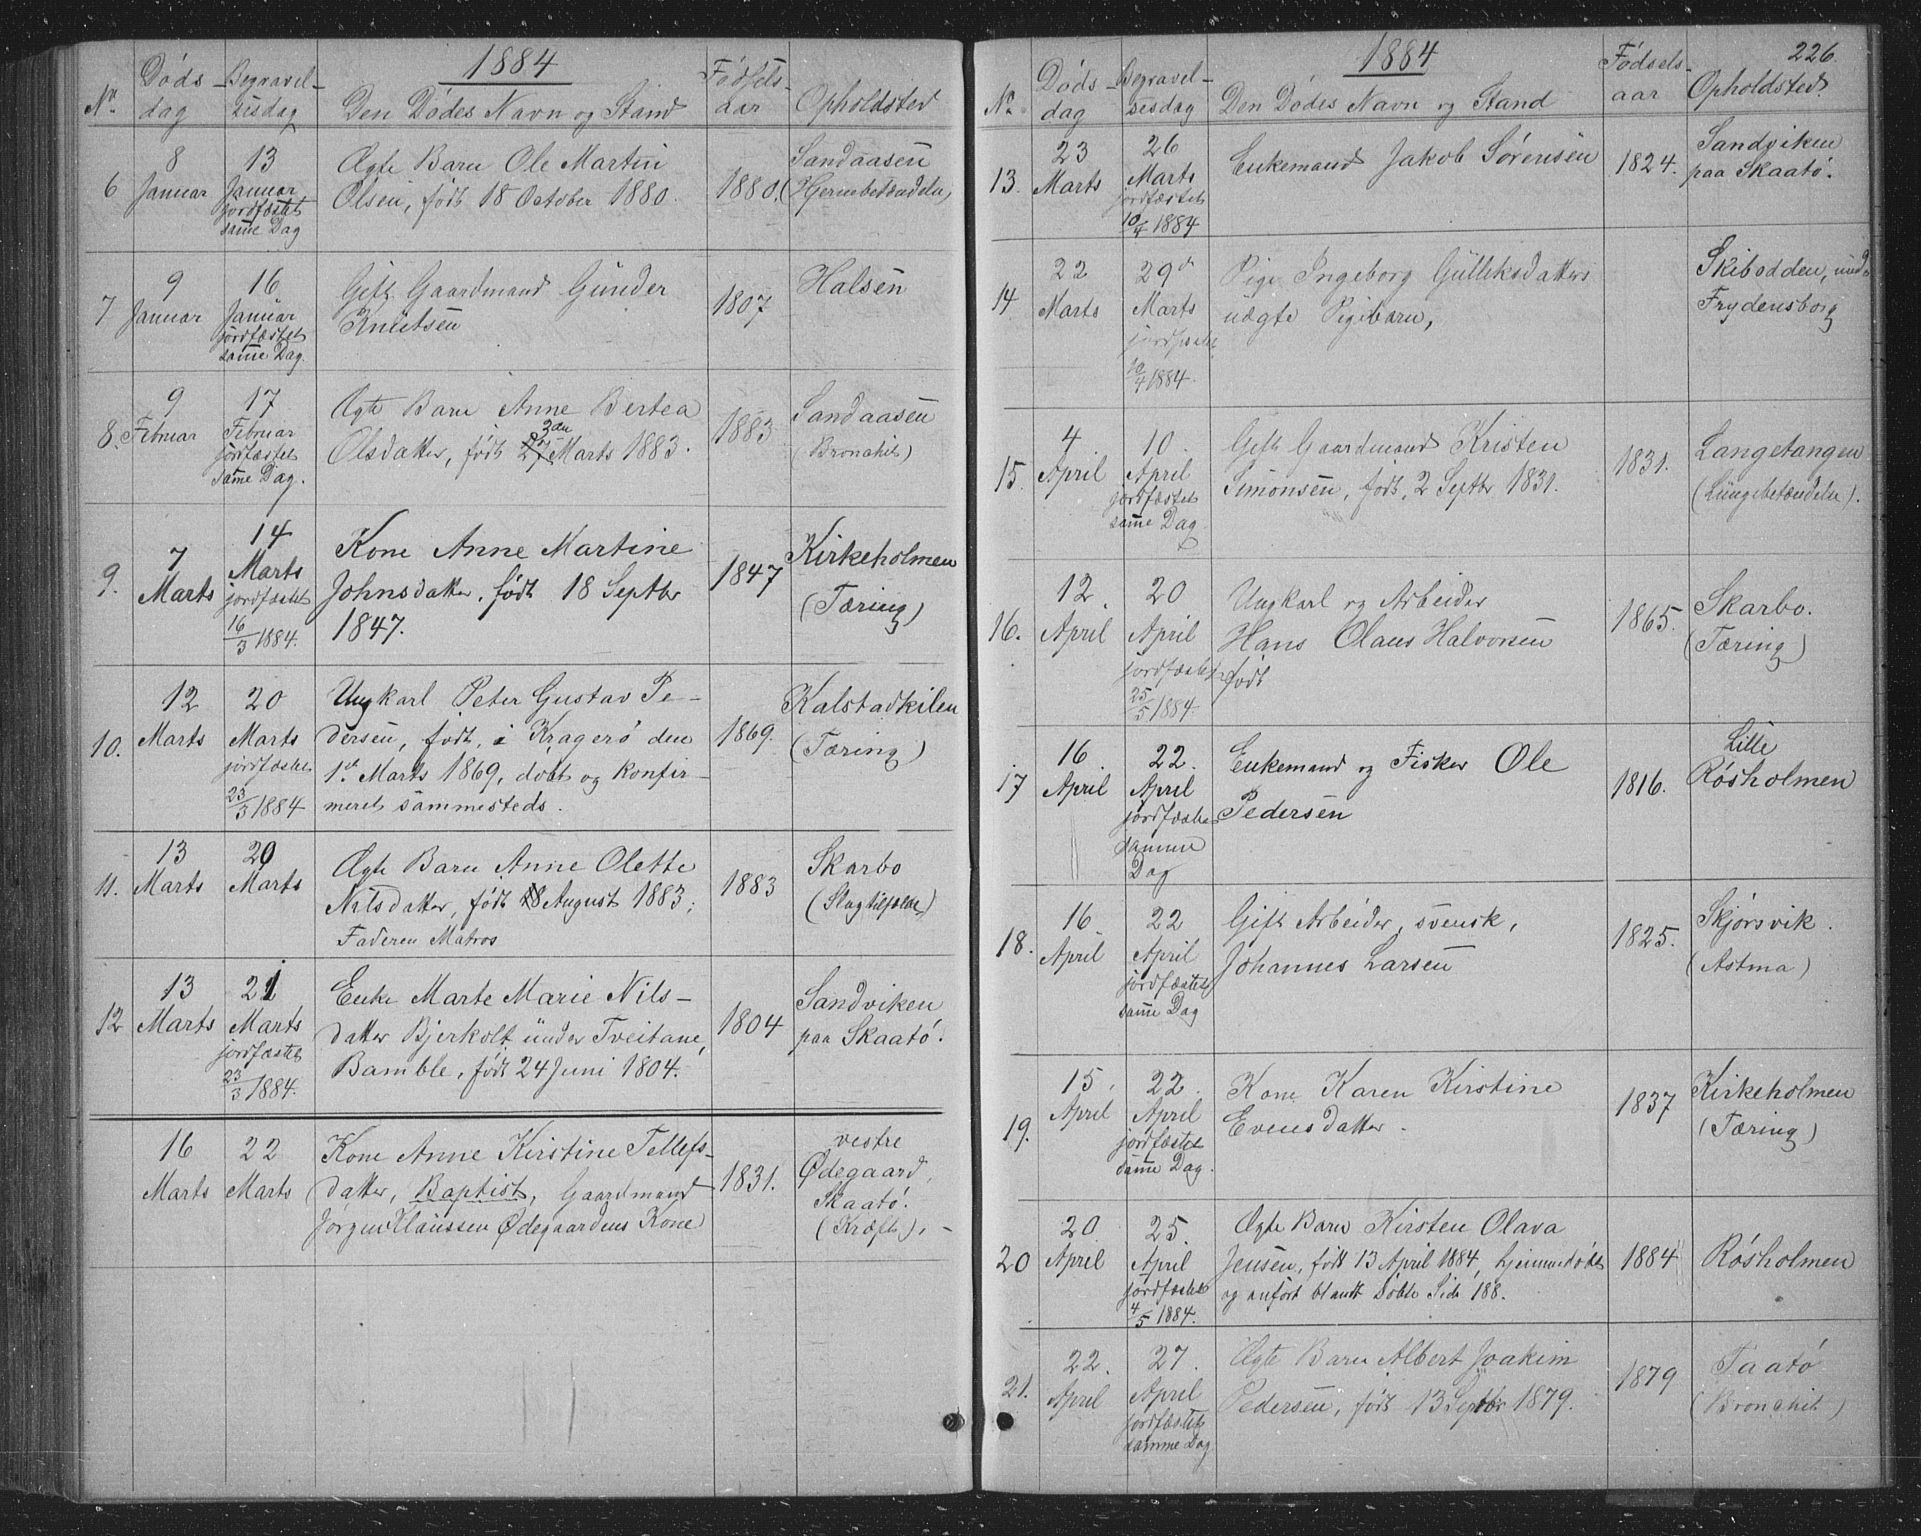 1884
No.
Døds-
dag
Begravel-
sesdag
Den Dødes Navn og Stand
Fødsels-
aar
Opholdsted
6
8
Januar
13
Januar
jordfæstet
samme Dag
Ægte Barn Ole Martin
Olsen, født 18 October 1880.
1880.
Sandaasen
(Hjernebetændelse)
7
9
Januar
16
Januar
jordfæstet
samme Dag.
Gift Gaardmand Gunder
Knutsen
1807
Halsen
8.
9
Februar
17
Februar
jordfæstet
samme Dag.
Ægte Barn Anne Bertea
3die
Olsdatter, født 27 Marts 1883.
1883
Sandaasen
(Bronchit)
9.
7
Marts
14
Marts
jordfæstet
16/3 1884.
Kone Anne Martine
Johnsdatter, født 18 Septbr
1847.
1847
Kirkeholmen
(Tæring)
10.
12
Marts
20
Marts
jordfæstet
23/3 1884
Ungkarl Peter Gustav Pe-
dersen, født i Kragerø den
1ste Marts 1869, døbt og konfir-
meret sammesteds.
1869.
Kalstadkilen
(Tæring)
11.
13
Marts
20
Marts
Ægte Barn Anne Olette
Nilsdatter, født 18 August 1883;
Faderen Matros
1883
Skarbo
(Slagtilfælde)
12
13
Marts
21
Marts
jordfæstet
23/3 1884.
Enke Marte Marie Nils-
datter Bjerkolt under Tveitane,
Bamble, født 24 Juni 1804.
1804
Sandviken
paa Skaatø.
16
Marts
22
Marts
Kone Anne Kirstine Tellefs-
datter, Baptist, Gaardmand
Jørgen Klaussen Ødegaardens Kone
1831.
vestre
Ødegaard,
Skaatø.
(Kræft).
1884
226.
No.
Døds-
dag
Begravel-
sesdag
Den Dødes Navn og Stand
Fødsels-
aar
Opholdsted.
13.
23
Marts
26
Marts
jordfæstet
10/4 1884
Enkemand Jakob Sørensen
1824.
Sandviken
paa Skaatø.
14.
22
Marts
29
Marts
jordfæstet
10/4 1884.
Pige Ingeborg Gulliksdatters
uægte Pigebarn,
Skibodden, under
Frydensborg
15.
4
April
10.
April
jordfæstet
samme Dag
Gift Gaardmand Kristen
Simonsen, født, 2 Septbr 1831.
1831.
Langetangen
(Lungebetændelse).
16.
12
April
20
April
jordfæstet
25/5 1884.
Ungkarl og Arbeider
Hans Olaus Halvorsen
født
1865.
Skarbo.
(Tæring)
17
16
April
22.
April
jordfæstet
samme
Dag
Enkemand og Fisker Ole
Pedersen
1816.
Lille
Røsholmen
18.
16
April
22
April
jordfæstet
samme Dag
Gift Arbeider, svensk,
Johannes Larsen
1825.
Skjørsvik.
(Astma)
19.
15.
April
22.
April
jordfæstet
samme Dag.
Kone Karen Kirstine
Evensdatter.
1837
Kirkeholmen
(Tæring)
20
20
April
25.
April
jordfæstet
4/5 1884.
Ægte Barn Kirsten Olava
Jensen, født 13 April 1884, hjemmedøbt
og anført blandt Døbte Side 188.
1884
Røsholmen
21.
22.
April
27.
April
jordfæstet
samme Dag
Ægte Barn Albert Joakim
Pedersen, født 13 Septbr 1879.
1879
Taatø
(Bronchit)